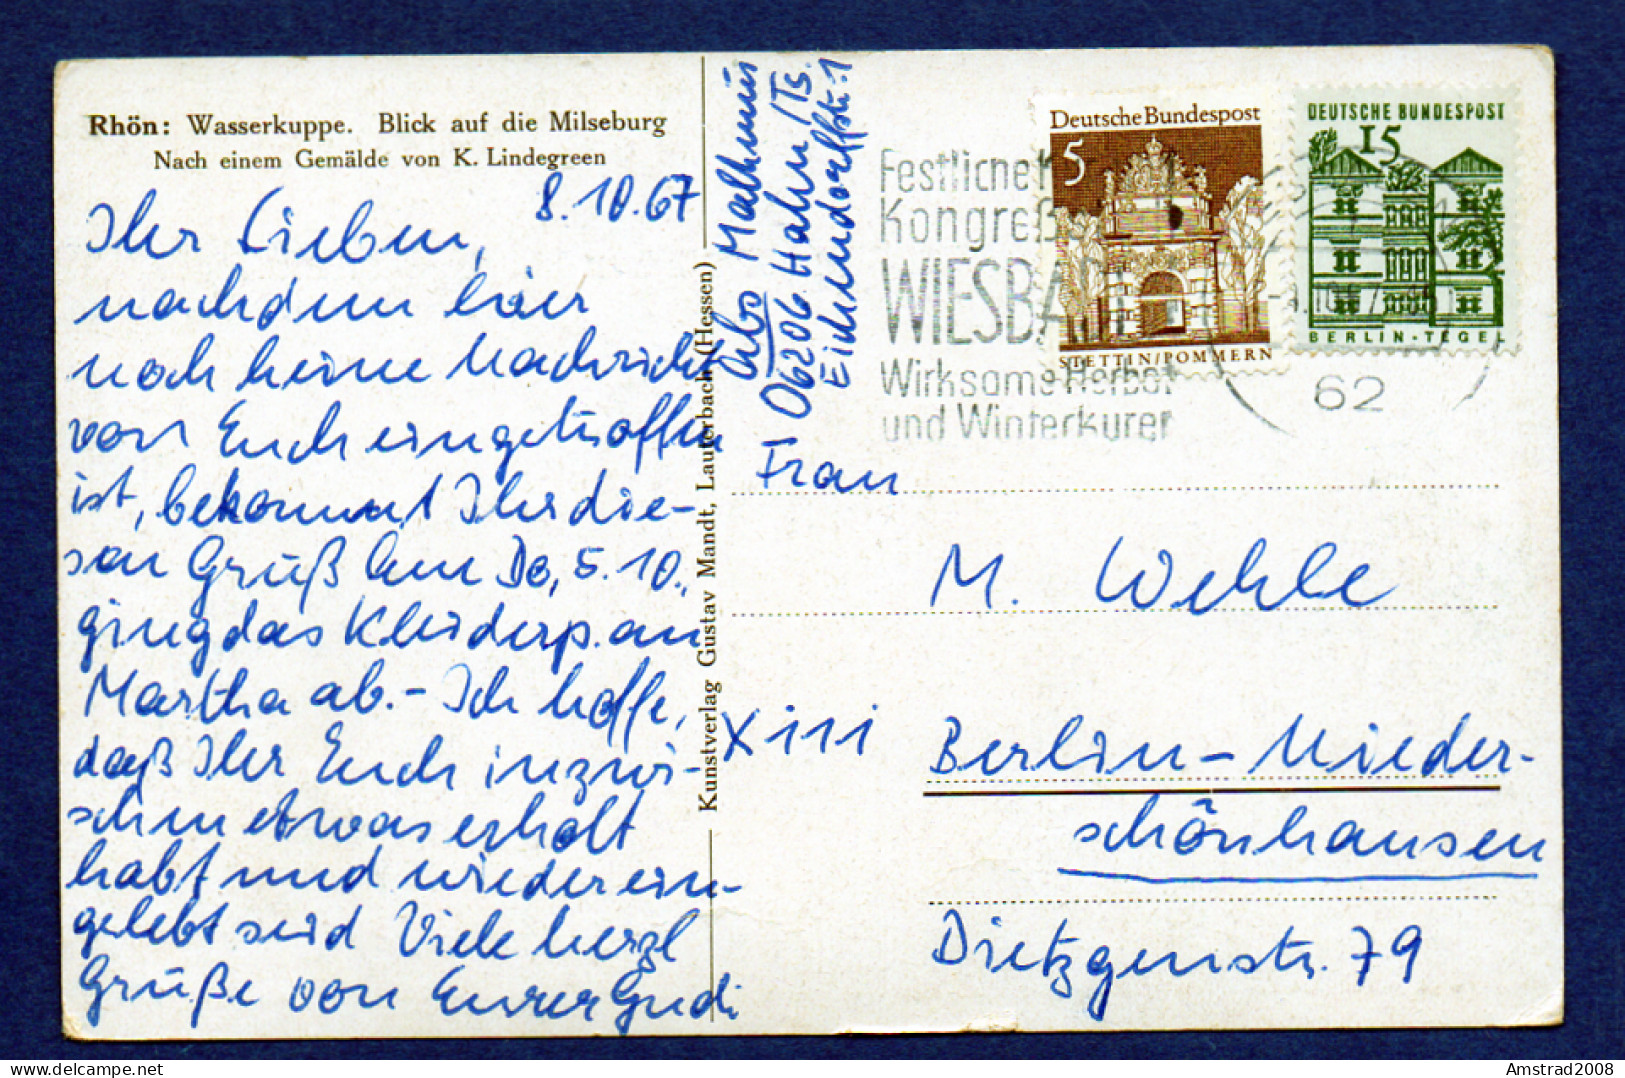 Rhön: Wasserkuppe. Blick auf die Milseburg
Nach einem Gemälde von K. Lindegreen
8.10.67
Ihr Lieben,
nachdem hier
noch keine Nachricht
von Euch eingetroffen
ist, bekommt Ihr die-
sen Gruß. Am Do, 5.10.,
ging das Kleiderp. an
Martha ab. - Ich hoffe,
daß Ihr Euch inzwi-
schen etwas erholt
habt und wieder ein-
gelebt seid. Viele herzl
Grüße von Eurer Gudi
Kunstverlag Gustav Mandt, Lauterbach (Hessen)
Abs
06206 Hahn/Ts.
Eichendorffstr. 1
Festliche
Kongreß
WIESBA
Wirksame Herbst
und Winterkuren
62
Deutsche Bundespost
5
STETTIN/POMMERN
DEUTSCHE BUNDESPOST
15
BERLIN-TEGEL
Frau
M. Wehle
X 111
Berlin-Nieder-
schönhausen
Dietzgenstr. 79
Amstrad2008